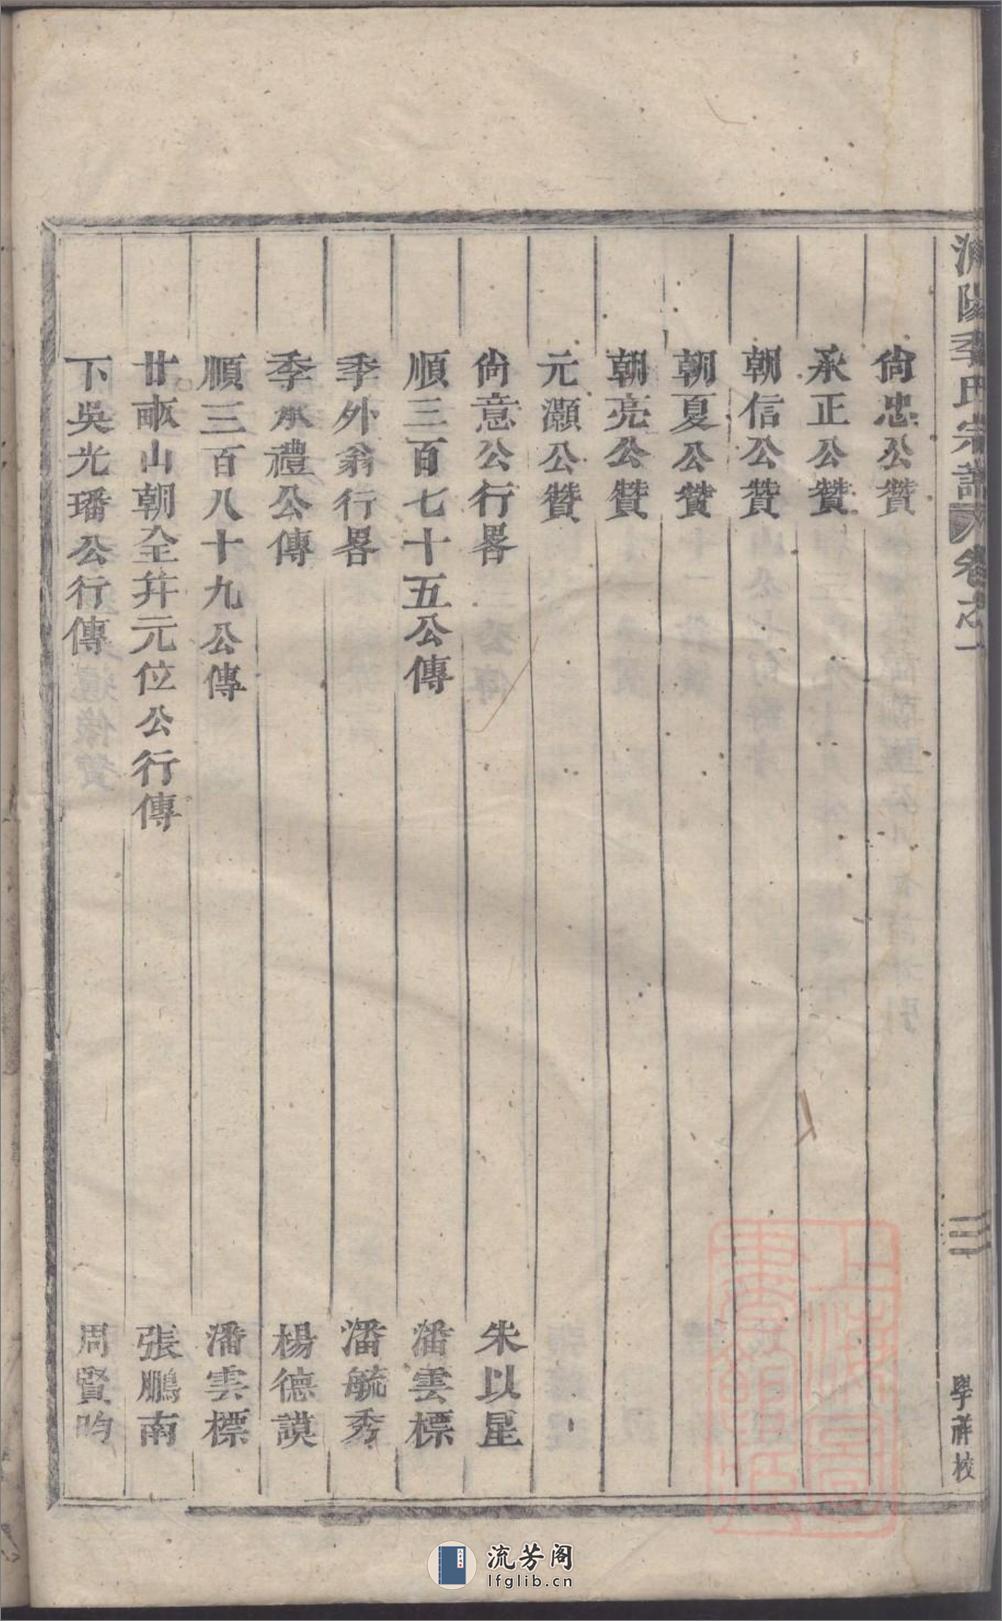 尙忠公贊
承正公贊
朝信公贊
朝夏公贊
朝亮公贊
元灝公贊
尙意公行畧 朱以星
順三百七十五公傳 潘雲標
季外翁行畧 潘毓秀
季承禮公傳 楊德謨
順三百八十九公傳 潘雲標
廿畝山朝全幷元位公行傳 張鵬南
下吳光璠公行傳 周賢昀
濟陽季氏宗譜 卷之一
三
學祥校
上海圖書館藏
流芳阁
lfglib.cn